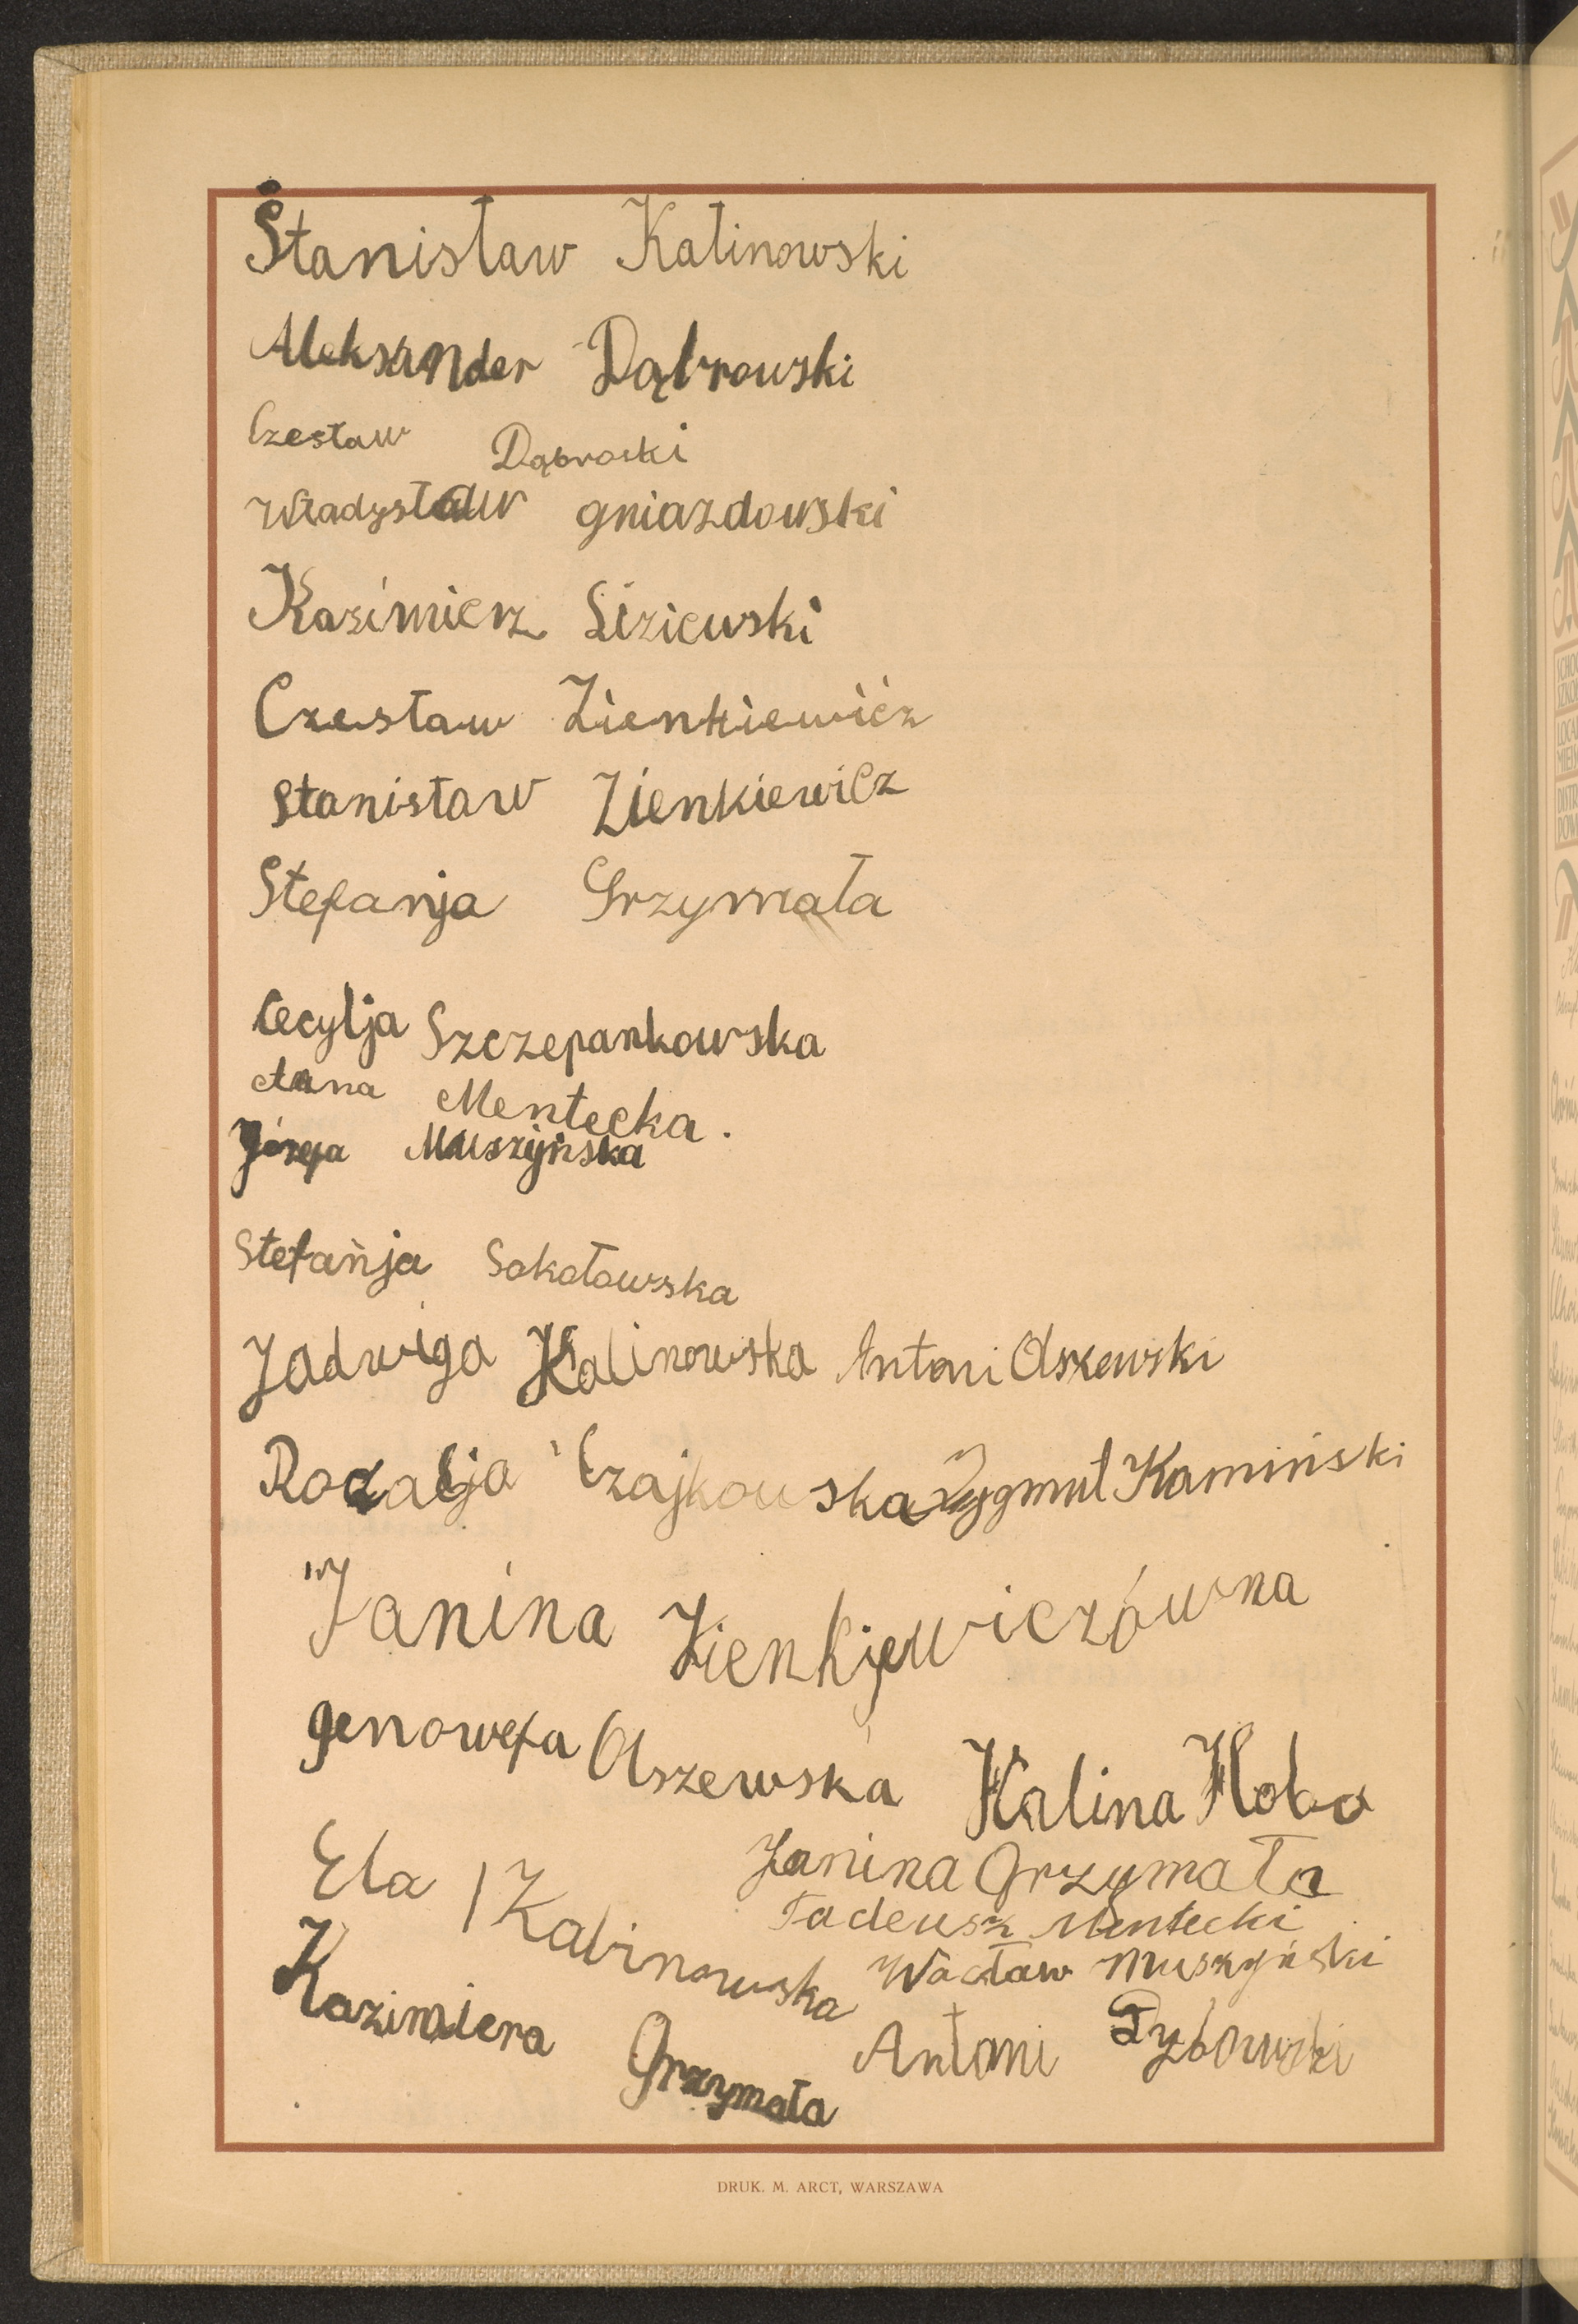 Stanisław Kalinowski
Aleksander Dąbrowski
Czesław Dąbrocki
Władysław gniazdowski
Kazimierz Liziewski
Czesław Zienkiewicz
Stanisław Zienkiewicz
Stefanja Grzymała
Cecylja Szczepankowska
Anna Mentecka.
Józefa Muszyńska
Stefanja Sokołowska
Jadwiga Kalinowska Antoni Olszewski
Rozalja Czajkowska Zygmut Kamiński
Janina Zienkiewiczówna
genowefa Olszewska Kalina
Ela Kalinowska Janina Grzymała
Tadeusz Mentecki
Wacław Muszyński
Kazimiera Grzymała Antoni
DRUK. M. ARCT, WARSZAWA